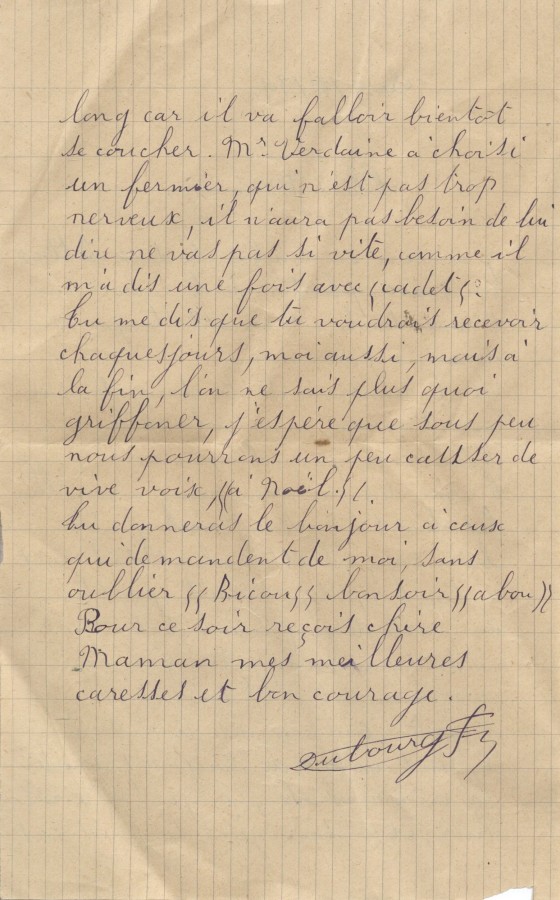 long car il va falloir bientôt
se coucher. Mr Verdaine a choisi
un fermier, qui n'est pas trop
nerveux, il n'aura pas besoin de lui
dire ne vas pas si vite, comme il
m'a dis une fois avec "cadet".
Tu me dis que tu voudrais recevoir
chaques jours, moi aussi, mais à
la fin, l'on ne sais plus quoi
griffoner, j'espère que sous peu
nous pourrons un peu causser de
vive voix, "(à Noël.)"
Tu donneras le bonjour à ceux
qui demandent de moi, sans
oublier "Bicou" bonsoir "abou"
Pour ce soir reçois chère
Maman mes meilleures
caresses et bon courage.
Dubourg